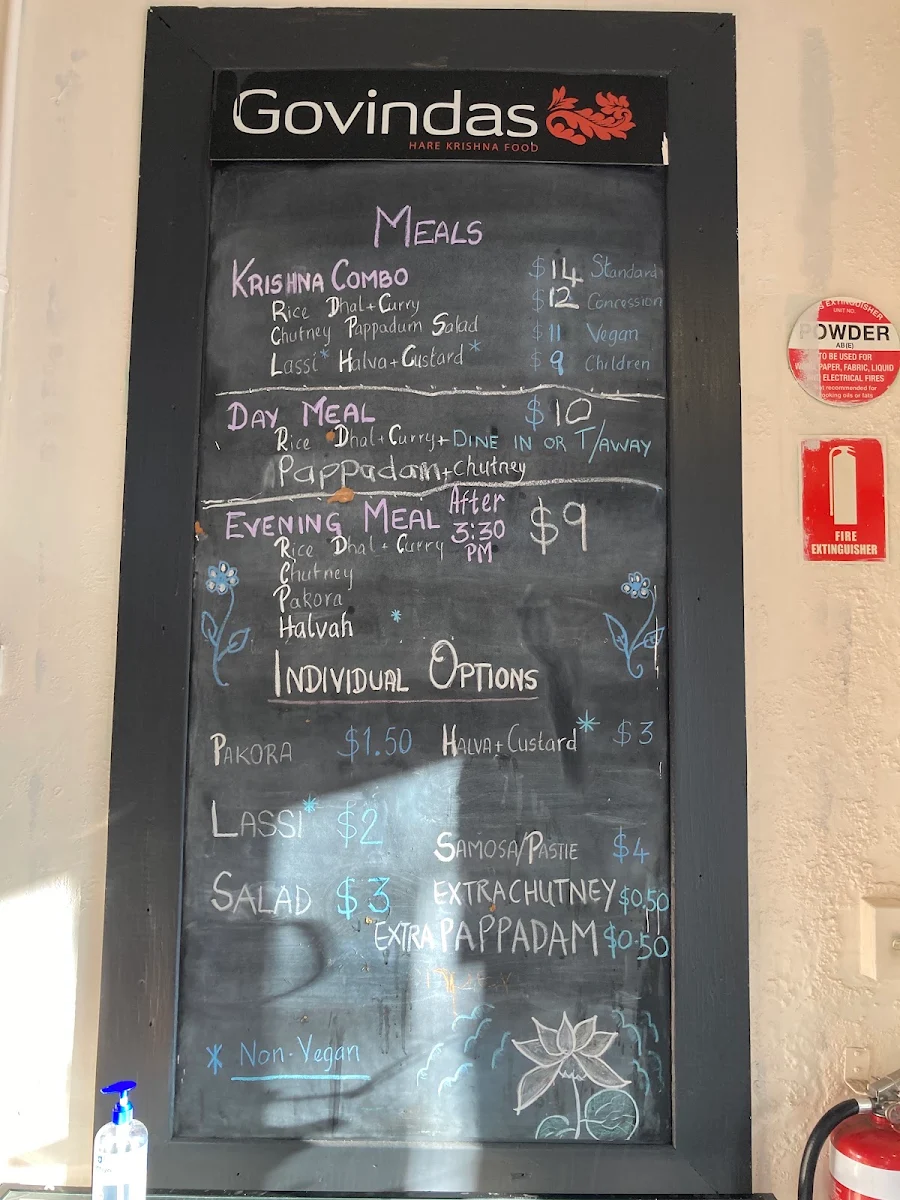 Govindas
HARE KRISHNA FOOD
MEALS
KRISHNA COMBO $14 Standard
Rice Dhal+Curry $12 Concession
Chutney Pappadum Salad $11 Vegan
Lassi* Halva+Custard* $9 Children
DAY MEAL $10
Rice Dhal+Curry+ DINE IN OR T/AWAY
Pappadam+chutney
EVENING MEAL After 3:30 PM $9
Rice Dhal+Curry
Chutney
Pakora
Halvah *
INDIVIDUAL OPTIONS
PAKORA $1.50 HALVA+Custard* $3
LASSI* $2
SAMOSA/PASTIE $4
SALAD $3 EXTRA CHUTNEY $0.50
EXTRA PAPPADAM $0.50
* Non-Vegan
EXTINGUISHER
UNIT NO.
POWDER
AB(E)
TO BE USED FOR
PAPER, FABRIC, LIQUID
ELECTRICAL FIRES
recommended for
cooking oils or fats
FIRE
EXTINGUISHER